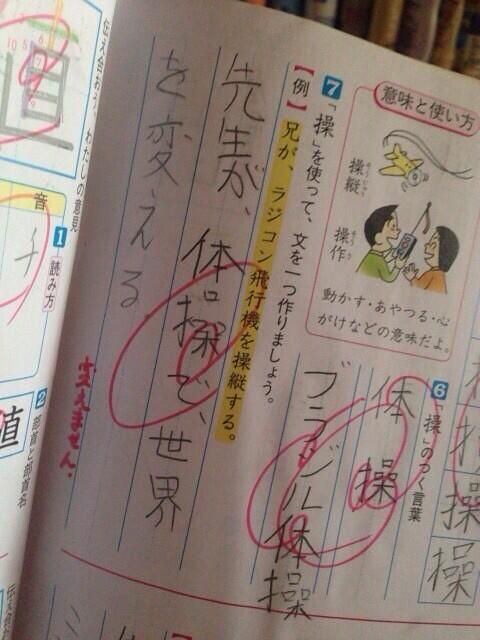 意味と使い方
操縦
そうじゅう
操作
そうさ
動かす・あやつる・心
がけなどの意味だよ。
6 「操」のつく言葉
体操
ブラジル体操
7 「操」を使って、文を一つ作りましょう。
【例】兄が、ラジコン飛行機を操縦する。
先生が、体操で、世界
を変える。
変えません。
伝え合おう、わたしの意見
1 読み方
音
2 部首と部首名
操